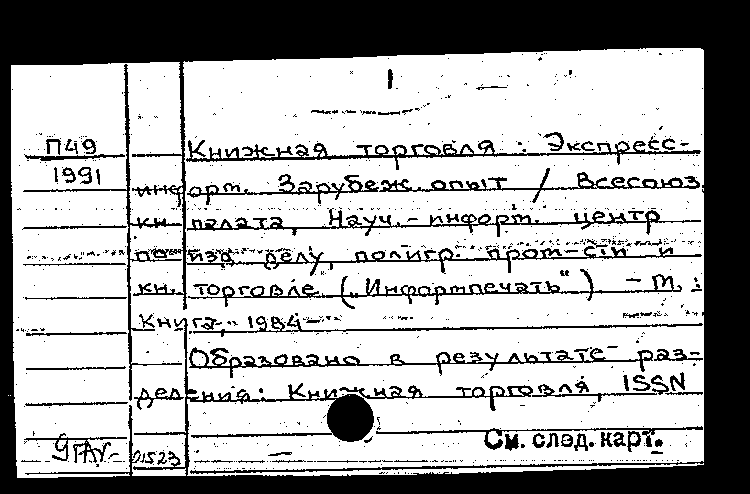 1
П49 Книжная торговля : Экспресс-
1991 информ. Зарубеж. опыт / Всесоюз.
кн. палата, Науч.-информ. центр
по изд. делу, полигр. пром-сти и
кн. торговле („Информпечать“) – М. :
Книга, 1984–
Образовано в результате раз-
деления: Книжная торговля, ISSN
01523
См. след. карт.